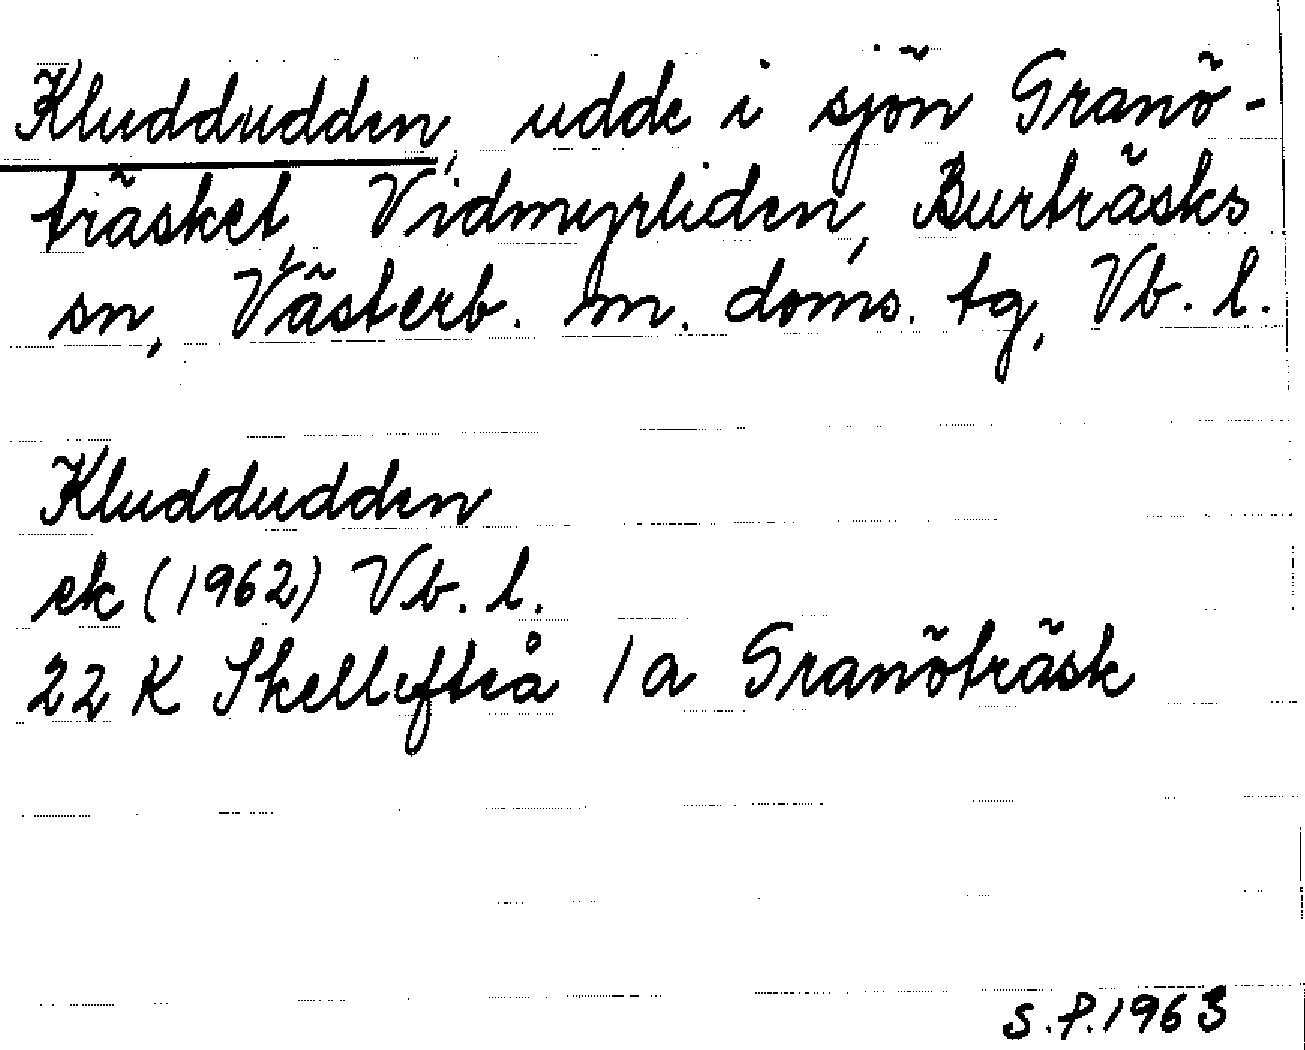 Kluddudden, udde i sjön Granö-
träsket, Vidmyrliden, Burträsks
sn, Västerb. m. doms. tg, Vb. l.
Kluddudden
ek (1962) Vb. l.
22 K Skellefteå 1a Granöträsk
S.P.1963